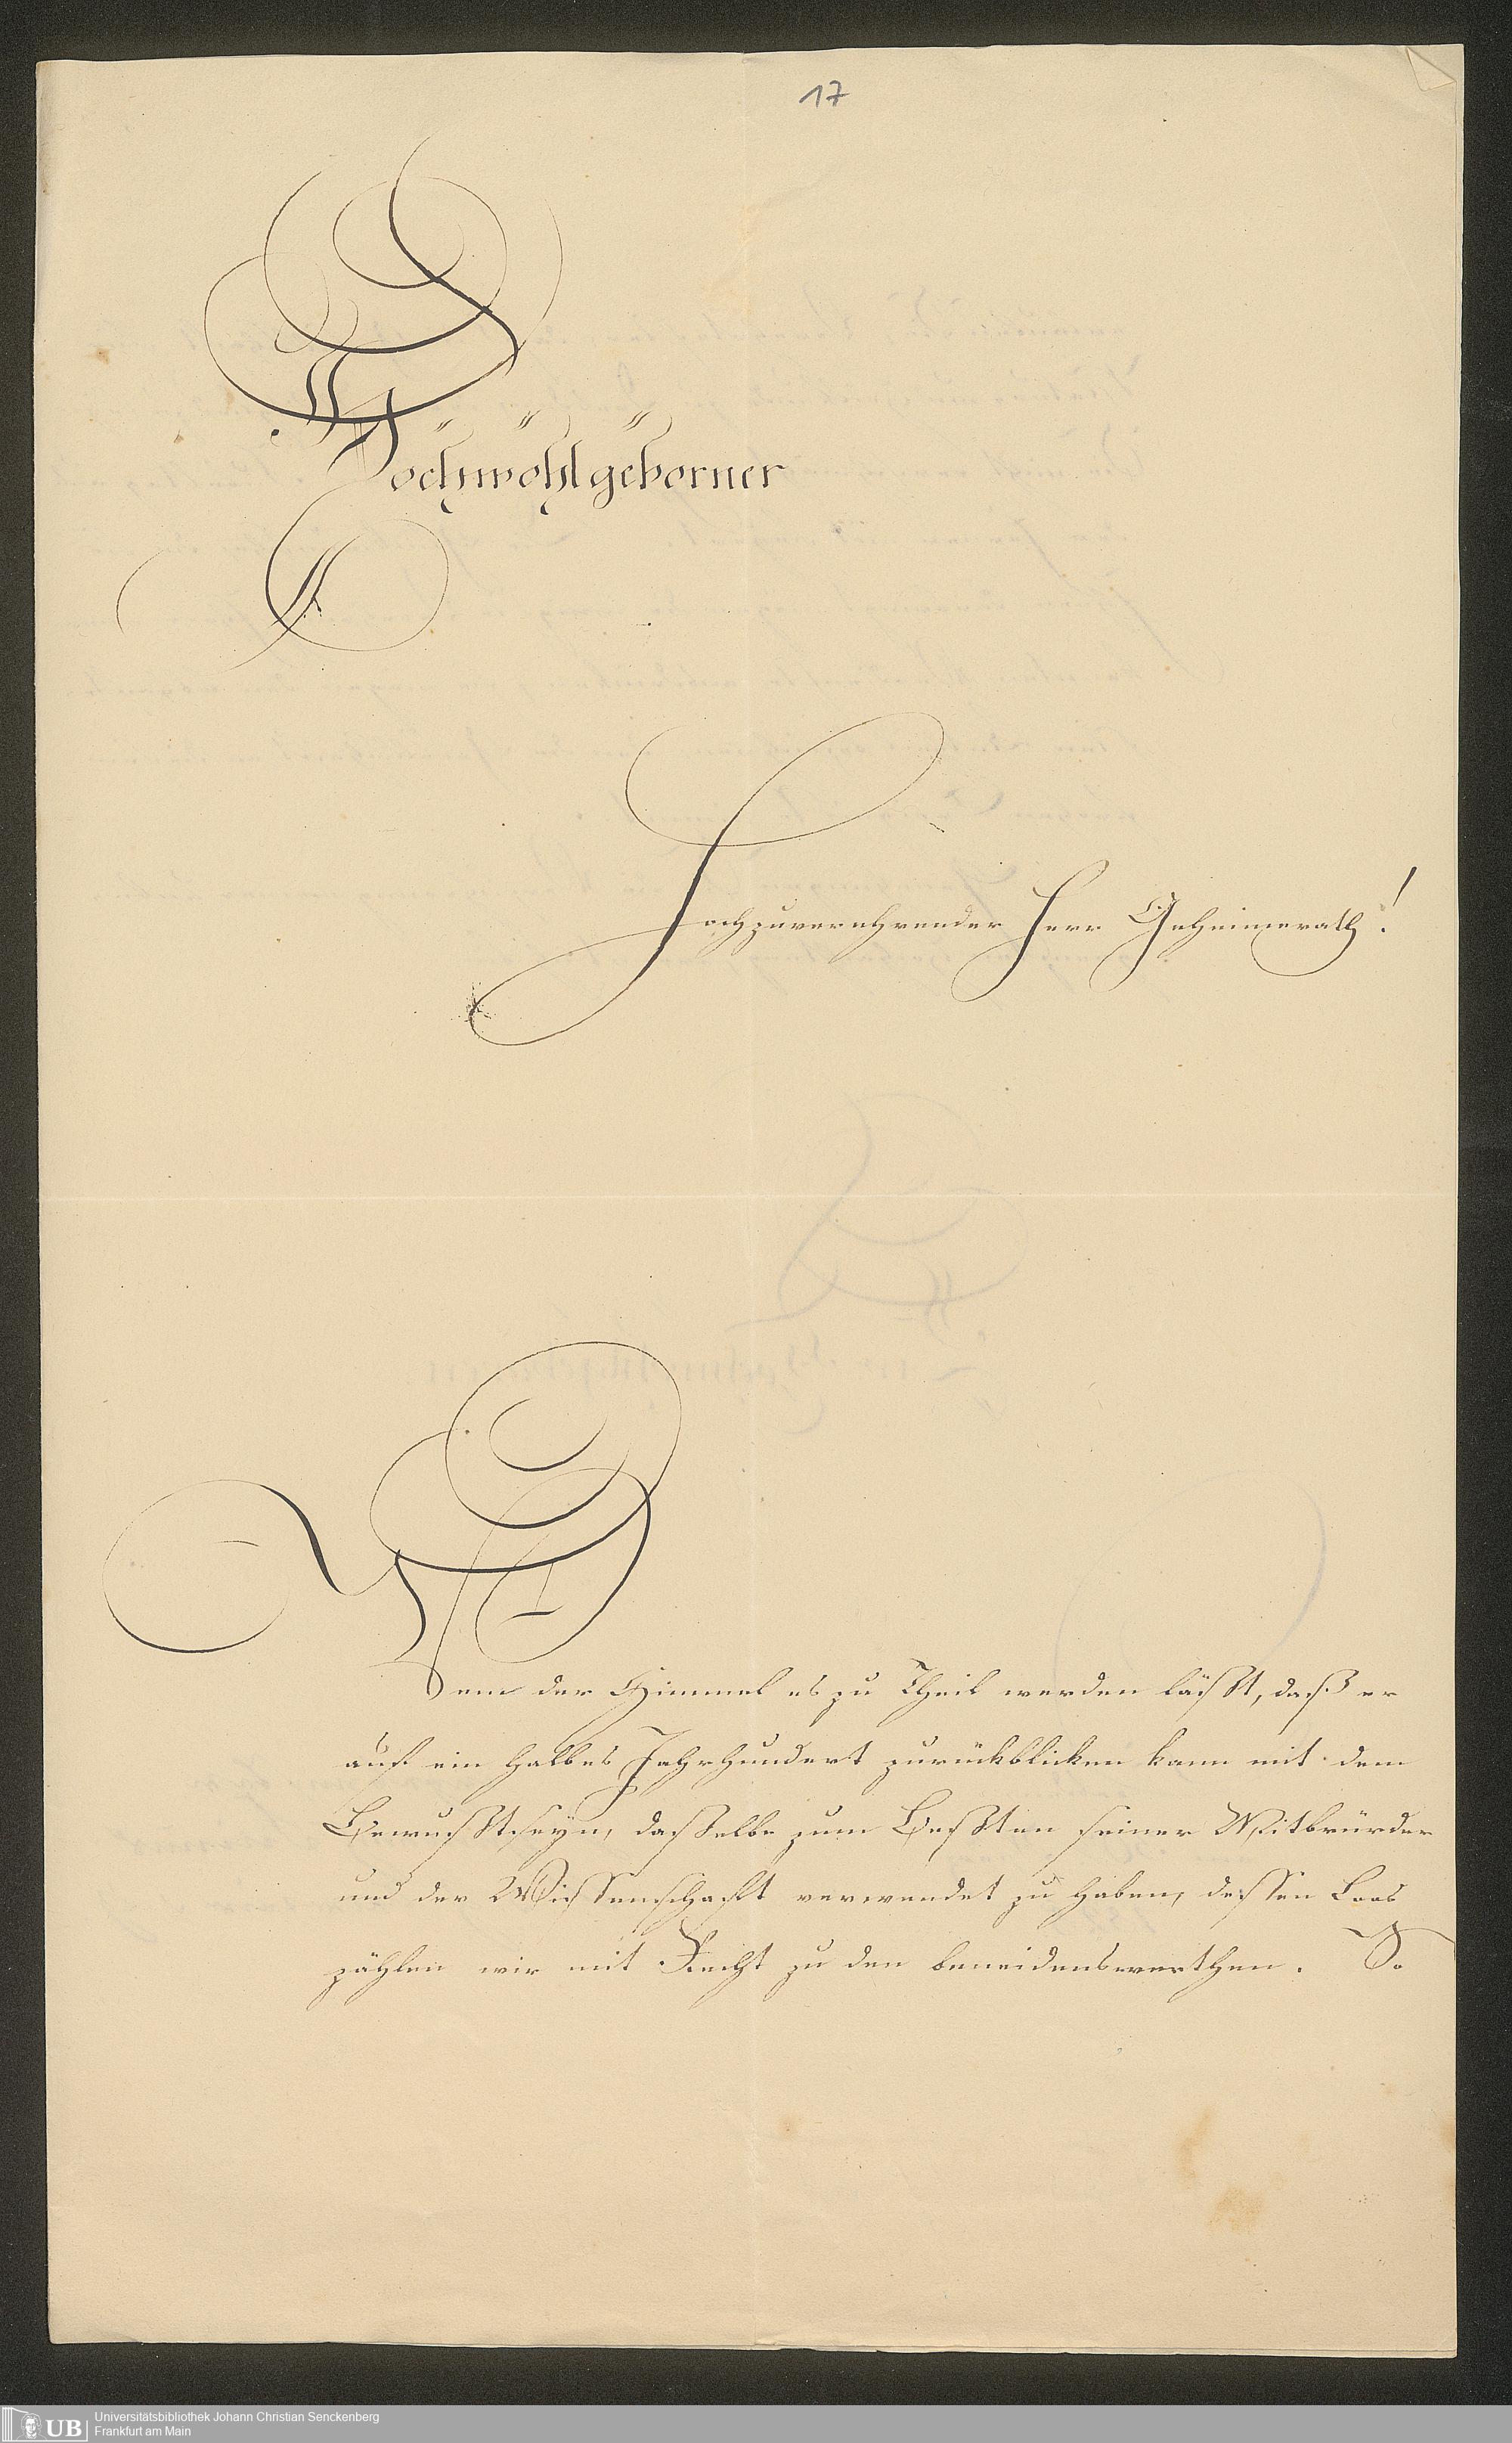 17
Hochwohlgeborner
Hochzuverehrender Herr Geheimerath!
Wem der Himmel es zu Theil werden läßt, daß er
auf ein halbes Jahrhundert zurückblicken kann mit dem
Bewußtseyn, dasselbe zum Beßten seiner Mitbrüder
und der Wissenschaft verwendet zu haben, dessen Loos
zählen wir mit Recht zu den beneidenswerthen. So
UB
Universitätsbibliothek Johann Christian Senckenberg
Frankfurt am Main